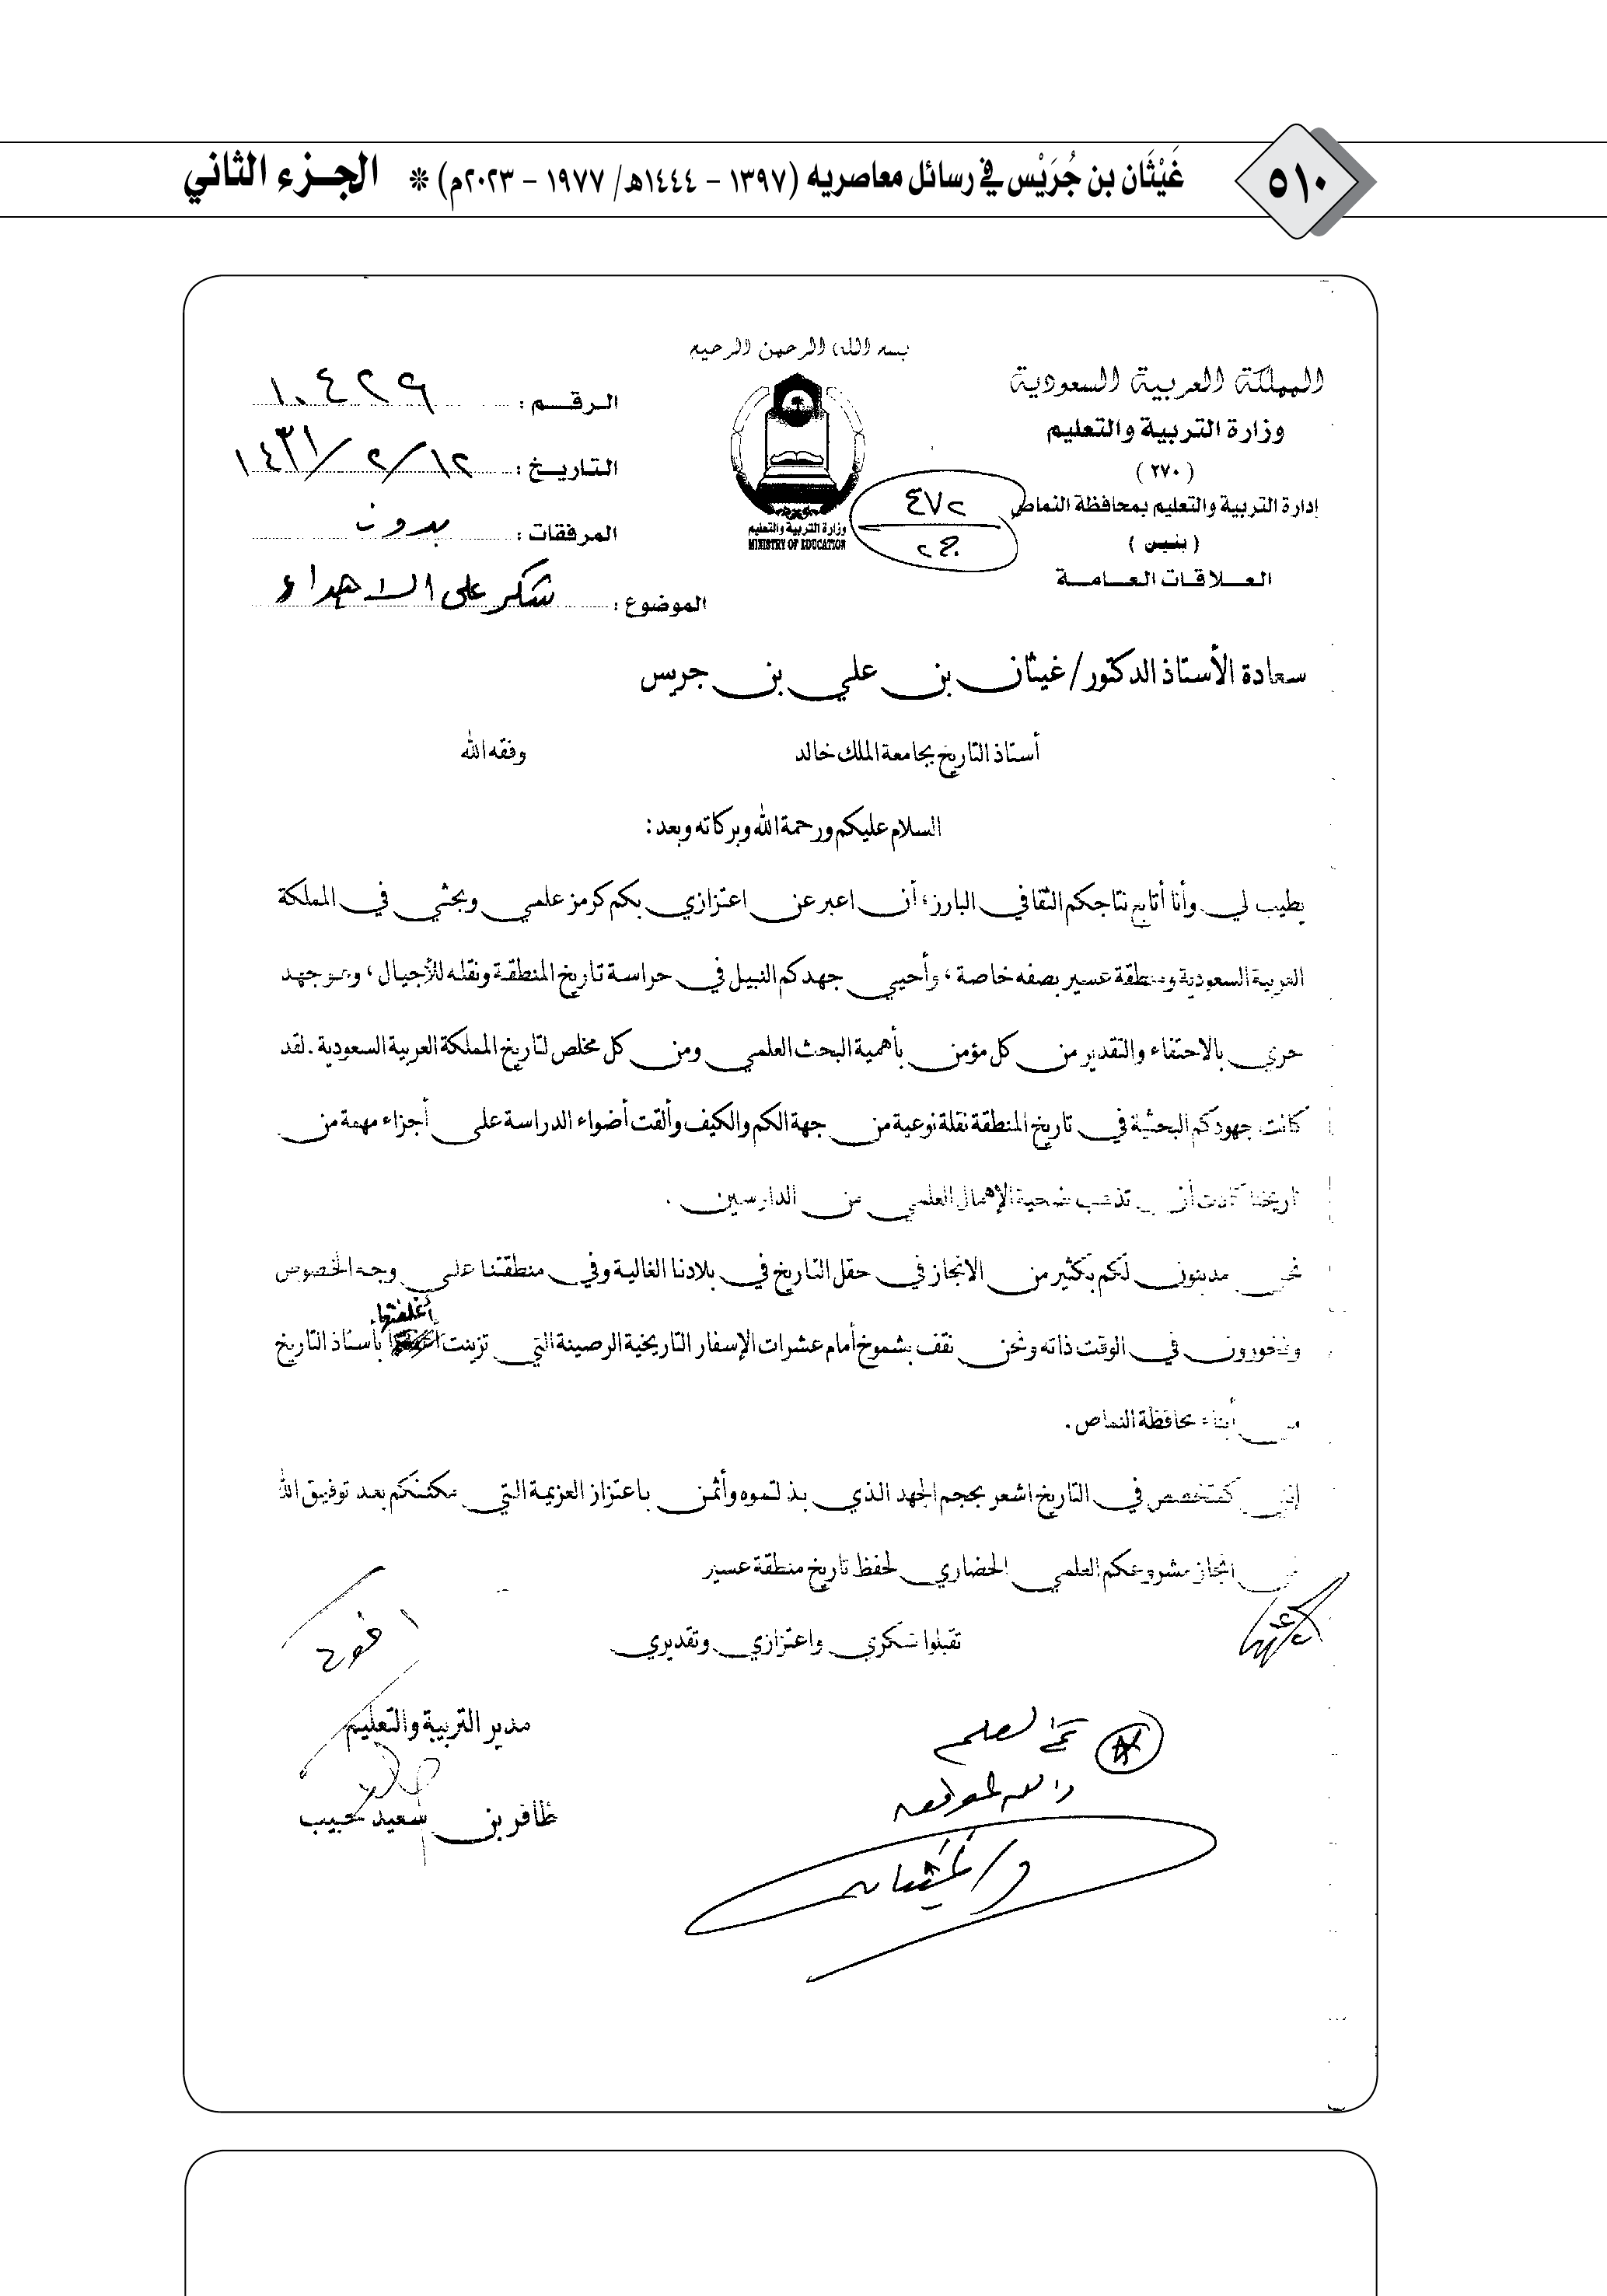 ٥١٠
غَيْثَان بن جُرَيْس في رسائل معاصريه (١٣٩٧ - ١٤٤٤هـ/ ١٩٧٧ - ٢٠٢٣م) * الجزء الثاني
بسم الله الرحمن الرحيم
المملكة العربية السعودية
وزارة التربية والتعليم
(٢٧٠)
إدارة التربية والتعليم بمحافظة النماص
( بنين )
العلاقات العامة
وزارة التربية والتعليم
MINISTRY OF EDUCATION
٤٧٢
ج٢
الرقم : ١٠٤٢٩
التاريخ : ١٤٣١/٢/١٢
المرفقات : بدون
الموضوع : شكر على الاهداء
سعادة الأستاذ الدكتور/ غيثان بن علي بن جريس
أستاذ التاريخ بجامعة الملك خالد وفقه الله
السلام عليكم ورحمة الله وبركاته وبعد :
يطيب لي وأنا أتابع نتاجكم الثقافي البارز، أن اعبر عن اعتزازي بكم كرمز علمي وبحثي في المملكة
العربية السعودية ومنطقة عسير بصفه خاصة ، وأحيي جهدكم النبيل في حراسة تاريخ المنطقة ونقله للأجيال ، وهو جهد
حري بالاحتفاء والتقدير من كل مؤمن بأهمية البحث العلمي ومن كل مخلص لتاريخ المملكة العربية السعودية . لقد
كانت جهودكم البحثية في تاريخ المنطقة نقلة نوعية من جهة الكم والكيف وألقت أضواء الدراسة على أجزاء مهمة من
تاريخنا كادت أن تذهب ضحية الإهمال العلمي من الدارسين .
نحن مدينون لكم بكثير من الانجاز في حقل التاريخ في بلادنا الغالية وفي منطقتنا على وجه الخصوص
وفخورون في الوقت ذاته ونحن نقف بشموخ أمام عشرات الإسفار التاريخية الرصينة التي تزينت أغلفتها بأستاذ التاريخ
من أبناء محافظة النماص .
إنني كمتخصص في التاريخ اشعر بحجم الجهد الذي بذلتموه وأثمن باعتزاز العزيمة التي مكنتكم بعد توفيق الله
من انجاز مشروعكم العلمي الحضاري لحفظ تاريخ منطقة عسير
تقبلوا شكري واعتزازي وتقديري
اخوك
مدير التربية والتعليم
ظافر بن سعيد حبيب